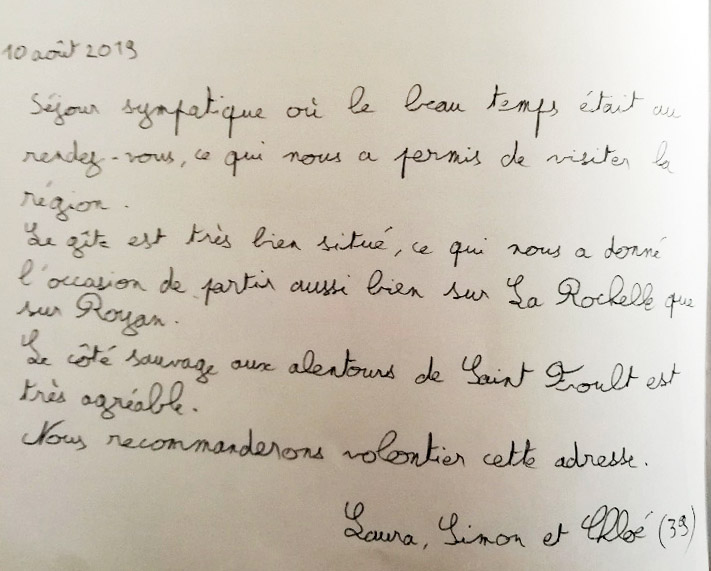 10 août 2019
Séjour sympatique où le beau temps était au
rendez-vous, ce qui nous a permis de visiter la
région.
Le gîte est très bien situé, ce qui nous a donné
l'occasion de partir aussi bien sur La Rochelle que
sur Royan.
Le côté sauvage aux alentours de Saint Froult est
très agréable.
Nous recommanderons volontier cette adresse.
Laura, Simon et Chloé (39)